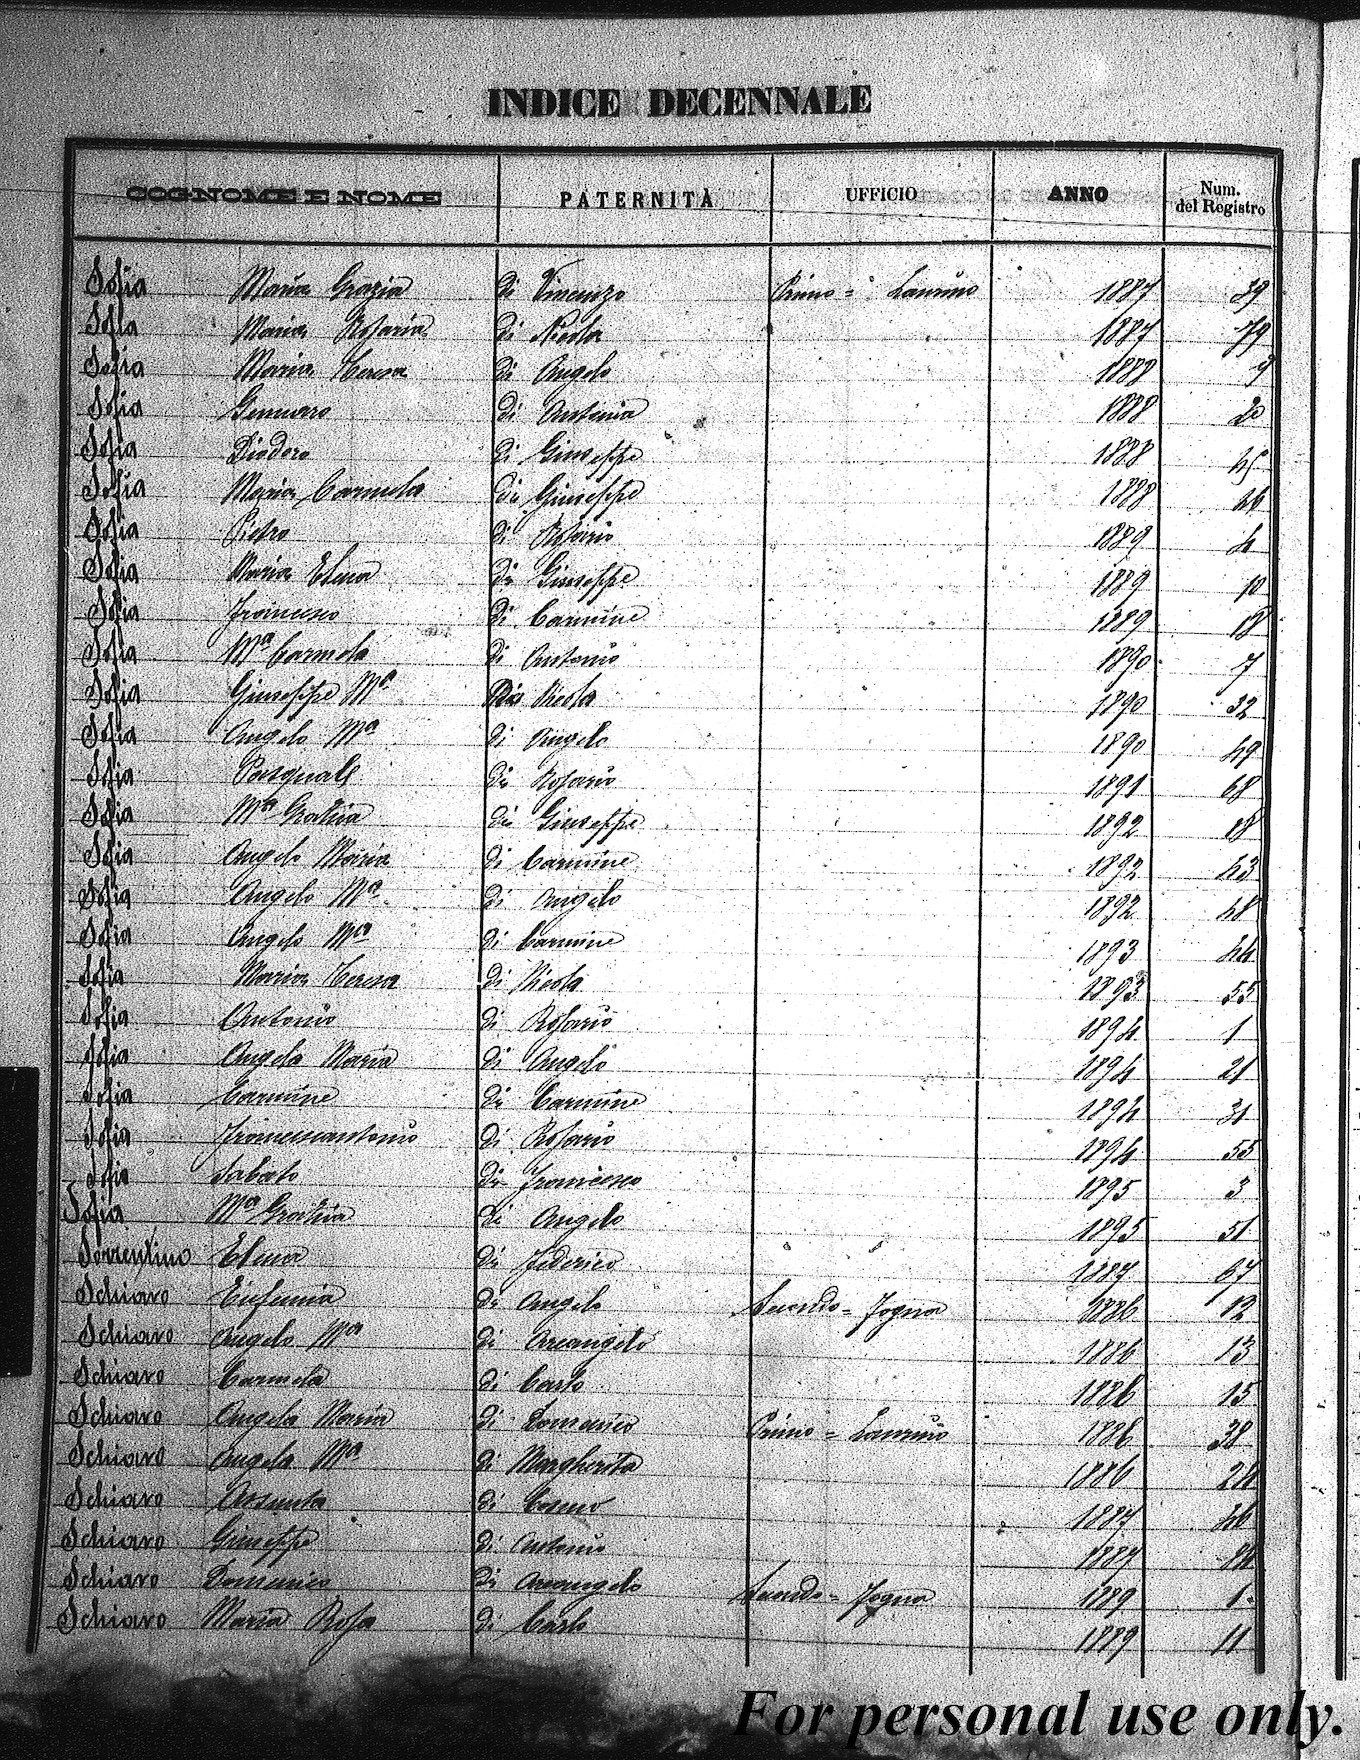 INDICE DECENNALE
COGNOME E NOME PATERNITÀ UFFICIO ANNO Num. del Registro
Sofia Maria Grazia di Vincenzo Primo = Laurino 1887 29
Sofia Maria Rosaria di Nicola 1887 79
Sofia Maria Teresa di Angelo 1888 9
Sofia Gennaro di Antonio 1888 20
Sofia Diodoro di Giuseppe 1888 45
Sofia Maria Carmela di Giuseppe 1888 46
Sofia Pietro di Rosario 1889 4
Sofia Maria Elena di Giuseppe 1889 10
Sofia Francesco di Carmine 1889 18
Sofia Mª Carmela di Antonio 1890 7
Sofia Giuseppe Mª di Nicola 1890 32
Sofia Angelo Mª di Angelo 1890 49
Sofia Pasquale di Rosario 1891 68
Sofia Mª Grazia di Giuseppe 1892 18
Sofia Angelo Maria di Carmine 1892 43
Sofia Angelo Mª di Angelo 1892 48
Sofia Angelo Mª di Carmine 1893 44
Sofia Maria Teresa di Nicola 1893 55
Sofia Antonio di Rosario 1894 1
Sofia Angela Maria di Angelo 1894 21
Sofia Carmine di Carmine 1894 31
Sofia Francescantonio di Rosario 1894 55
Sofia Sabato di Francesco 1895 3
Sofia Mª Grazia di Angelo 1895 51
Sorrentino Elena di Federico 1887 67
Schiavo Eufemia di Angelo Secondo = Fogna 1886 12
Schiavo Angelo Mª di Arcangelo 1886 13
Schiavo Carmela di Carlo 1886 15
Schiavo Angela Maria di Domenico Primo = Laurino 1886 38
Schiavo Angela Mª di Margherita 1886
Schiavo Assunta di Cosmo 1887 46
Schiavo Giuseppe di Antonio 1887
Schiavo Domenico di Arcangelo Secondo = Fogna 1889 1
Schiavo Maria Rosa di Carlo 1889 11
For personal use only.